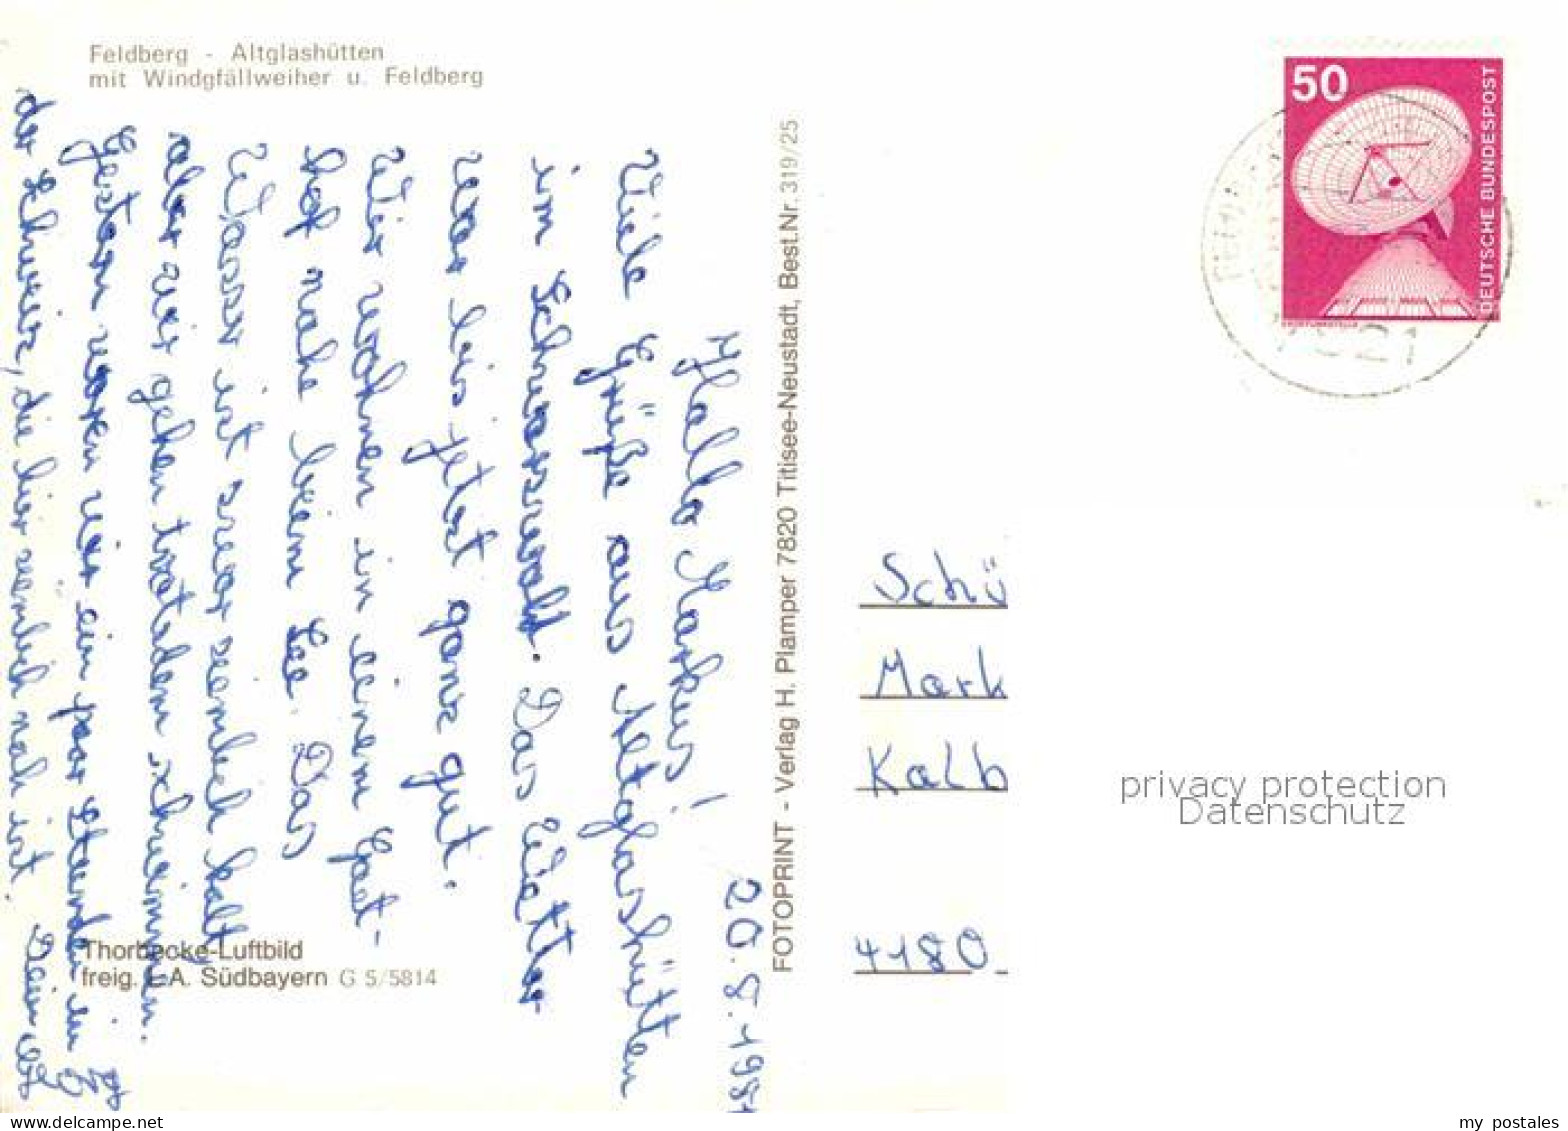 Feldberg - Altglashütten
mit Windgfällweiher u. Feldberg
20.8.198
Hallo Markus!
Viele Grüße aus Altglashütten
im Schwarzwalt. Das Wetter
war bis jetzt ganz gut.
Wir wohnen in einem Gast-
hof nahe beim See. Das
Wasser ist zwar ziemlich kalt
aber wir gehen trotzdem schwimmen.
Gestern waren wir ein par Stunden in
der Schweiz, die hier ziemlich nah ist.
Dein
Thorbecke-Luftbild
freig. L.A. Südbayern G 5/5814
FOTOPRINT - Verlag H. Plamper 7820 Titisee-Neustadt, Best.Nr. 319/25
50
DEUTSCHE BUNDESPOST
Schü
Mark
Kalb
4180
privacy protection
Datenschutz
my postales